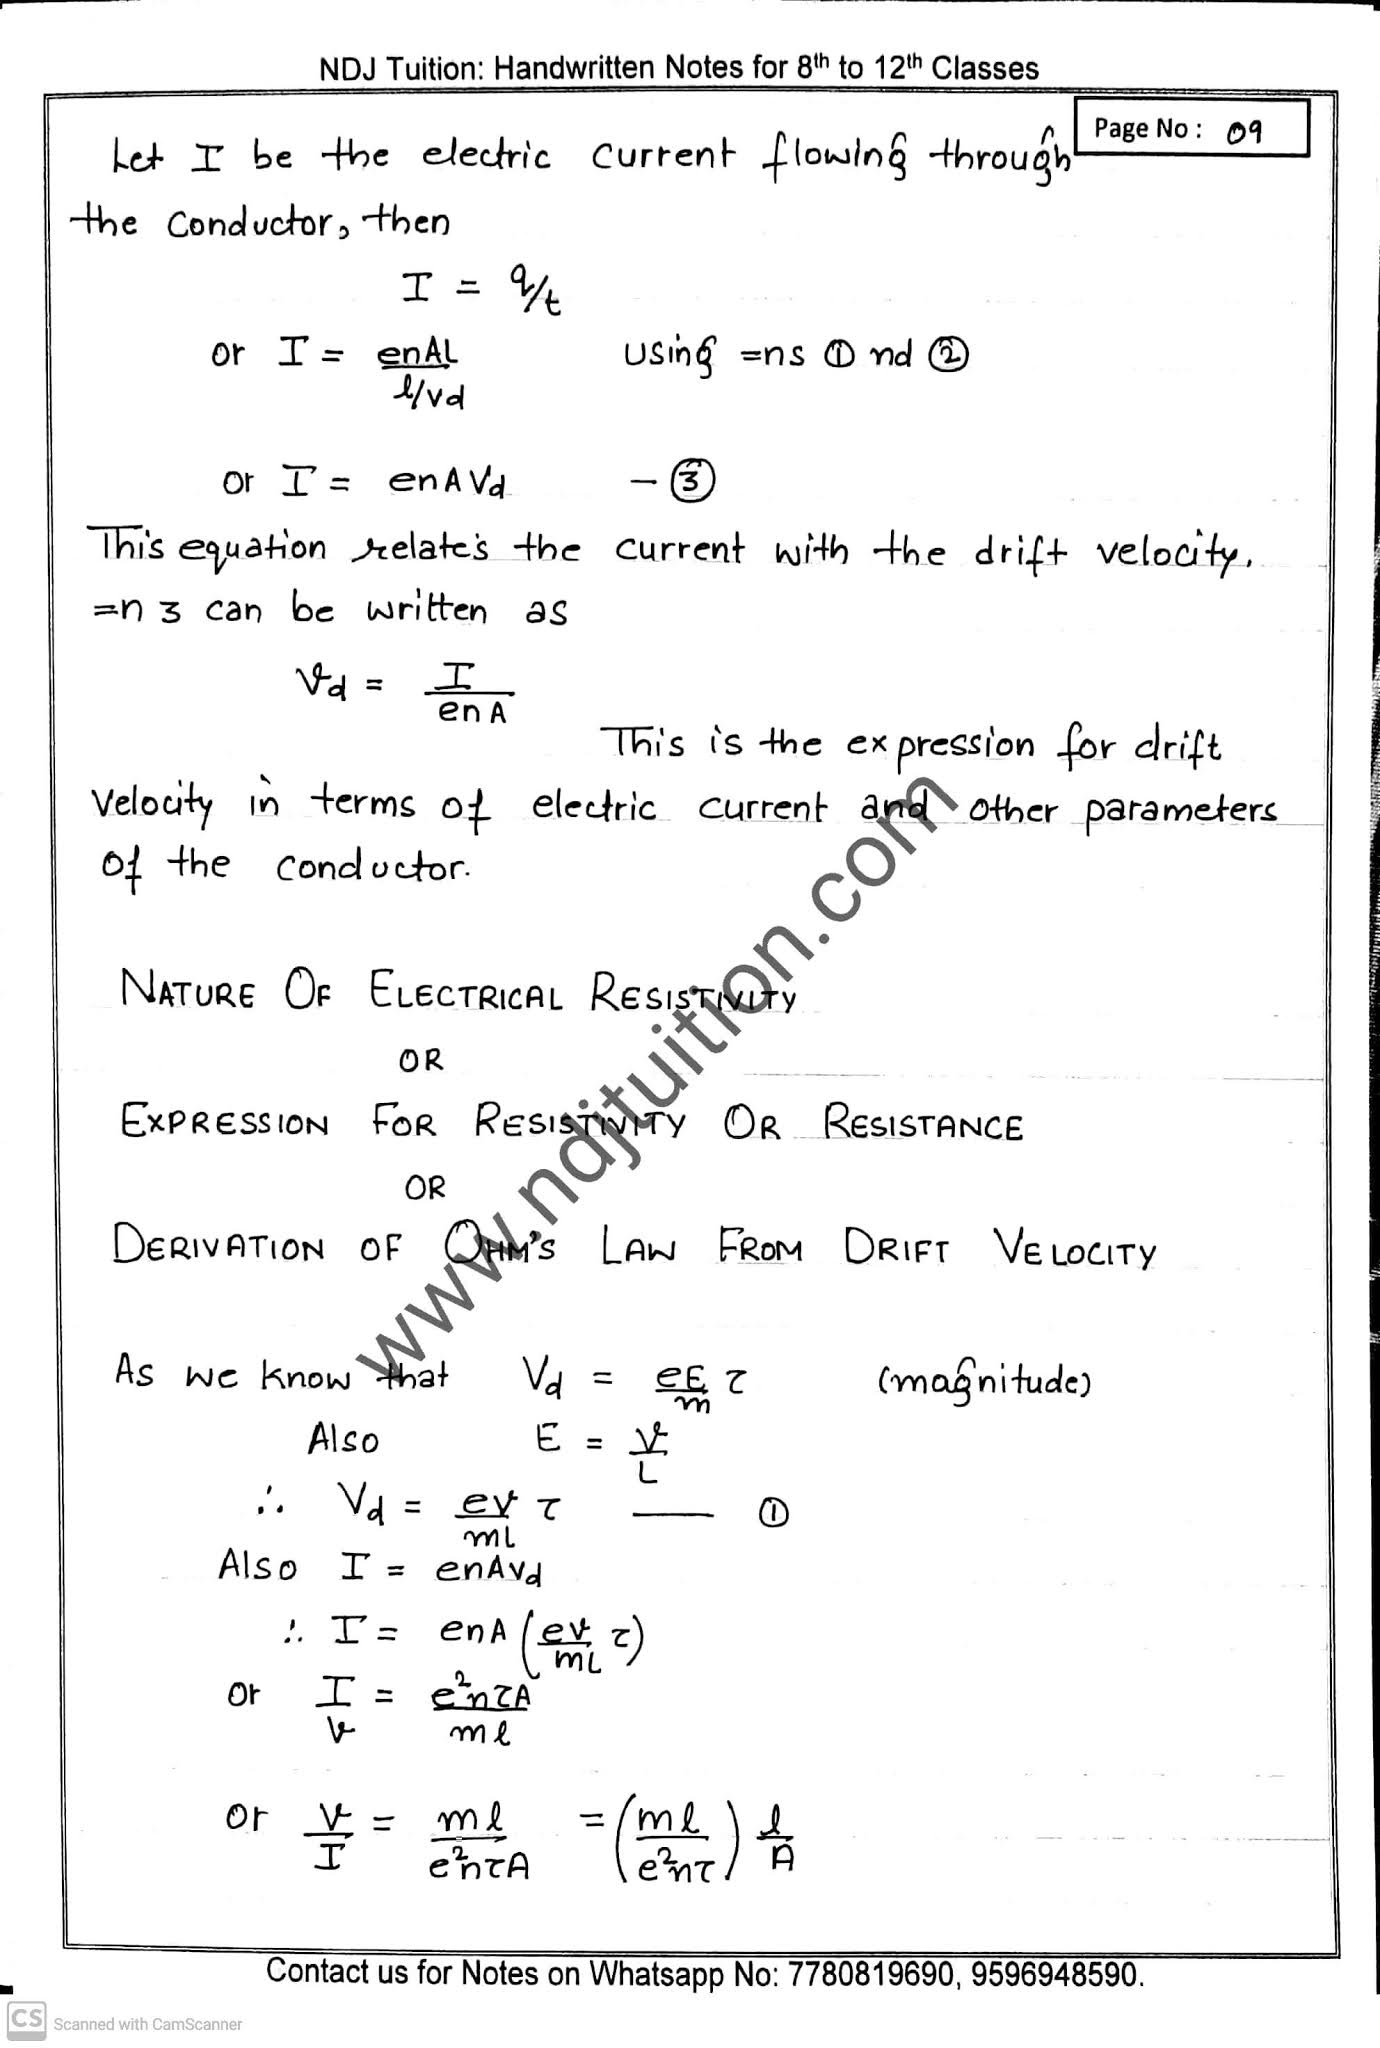 NDJ Tuition: Handwritten Notes for 8th to 12th Classes
Page No : 09
Let I be the electric current flowing through
the conductor, then
I = q/t
or I = enAL / l/vd using =ns ① nd ②
or I = enAVd - ③
This equation relate's the current with the drift velocity.
=n 3 can be written as
Vd = I / enA
This is the expression for drift
velocity in terms of electric current and other parameters
of the conductor.
NATURE OF ELECTRICAL RESISTIVITY
OR
EXPRESSION FOR RESISTIVITY OR RESISTANCE
OR
DERIVATION OF OHM'S LAW FROM DRIFT VELOCITY
As we know that Vd = eE/m τ (magnitude)
Also E = V/L
∴ Vd = eV/ml τ — ①
Also I = enAvd
∴ I = enA (eV/mL τ)
or I/V = e²nτA / ml
or V/I = ml / e²nτA = (ml / e²nτ) l/A
www.ndjtuition.com
Contact us for Notes on Whatsapp No: 7780819690, 9596948590.
CS Scanned with CamScanner